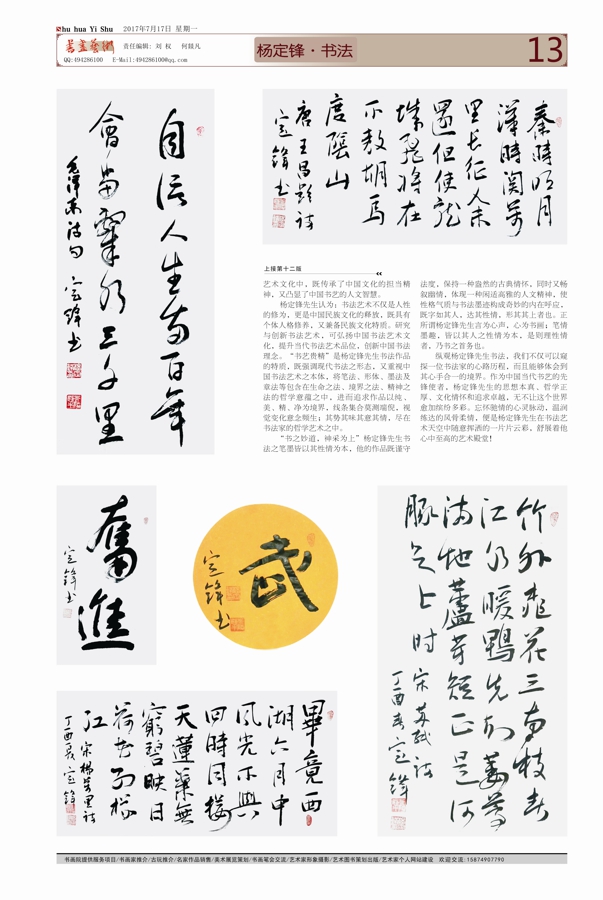 Shu hua Yi Shu 2017年7月17日 星期一
書畫藝術
责任编辑: 刘 权 何观凡
QQ:494286100 E-Mail:494286100@qq.com
杨定锋·书法
13
自信人生百年
會當擊水三千里
毛泽东诗句 定鋒书
秦時明月
漢時関万
里长征人未
還但使龙
城飛将在
不教胡马
度陰山
唐王昌龄诗
定鋒书
上接第十二版
艺术文化中，既传承了中国文化的担当精
神，又凸显了中国书艺的人文智慧。
杨定锋先生认为：书法艺术不仅是人性
的修为，更是中国民族文化的释放，既具有
个体人格修养，又兼备民族文化特质。研究
与创新书法艺术，可弘扬中国书法艺术文
化，提升当代书法艺术品位，创新中国书法
理念。“书艺贵精”是杨定锋先生书法作品
的特质，既强调现代书法之形态，又重视中
国书法艺术之本体，将笔法、形体、墨法及
章法等包含在生命之法、境界之法、精神之
法的哲学意蕴之中，进而追求作品以纯、
美、精、净为境界，线条集合莫测端倪，视
觉变化意之倾生；其势其味其意其情，尽在
书法家的哲学艺术之中。
“书之妙道，神采为上”杨定锋先生书
法之笔墨皆以其性情为本，他的作品既谨守
法度，保持一种盎然的古典情怀，同时又畅
叙幽情，体现一种闲适高雅的人文精神，使
性格气质与书法墨迹构成奇妙的内在呼应，
既字如其人，达其性情，形其其上者也。正
所谓杨定锋先生言为心声，心为书画；笔情
墨趣，皆以其人之性情为本，是则理性情
者，乃书之首务也。
纵观杨定锋先生书法，我们不仅可以窥
探一位书法家的心路历程，而且能够体会到
其心手合一的境界。作为中国当代书艺的先
锋使者，杨定锋先生的思想本真、哲学正
厚、文化情怀和追求卓越，无不让这个世界
愈加缤纷多彩。忘怀驰情的心灵脉动，温润
练达的风骨柔情，便是杨定锋先生在书法艺
术天空中随意挥洒的一片片云彩，舒展着他
心中至高的艺术殿堂！
奮進
定鋒书
武
定鋒书
竹外桃花三两枝春
江水暖鴨先知蔞蒿
满地蘆芽短正是河
豚欲上时
宋苏轼诗
丁酉春定鋒
畢竟西
湖六月中
风光不與
四時同接
天蓮葉無
窮碧映日
荷花别樣
红 宋楊万里诗
丁酉夏定鋒
书画院提供服务项目/书画家推介/古玩推介/名家作品销售/美术展览策划/书画笔会交流/艺术家形象摄影/艺术图书策划出版/艺术家个人网站建设 欢迎交流:15874907790